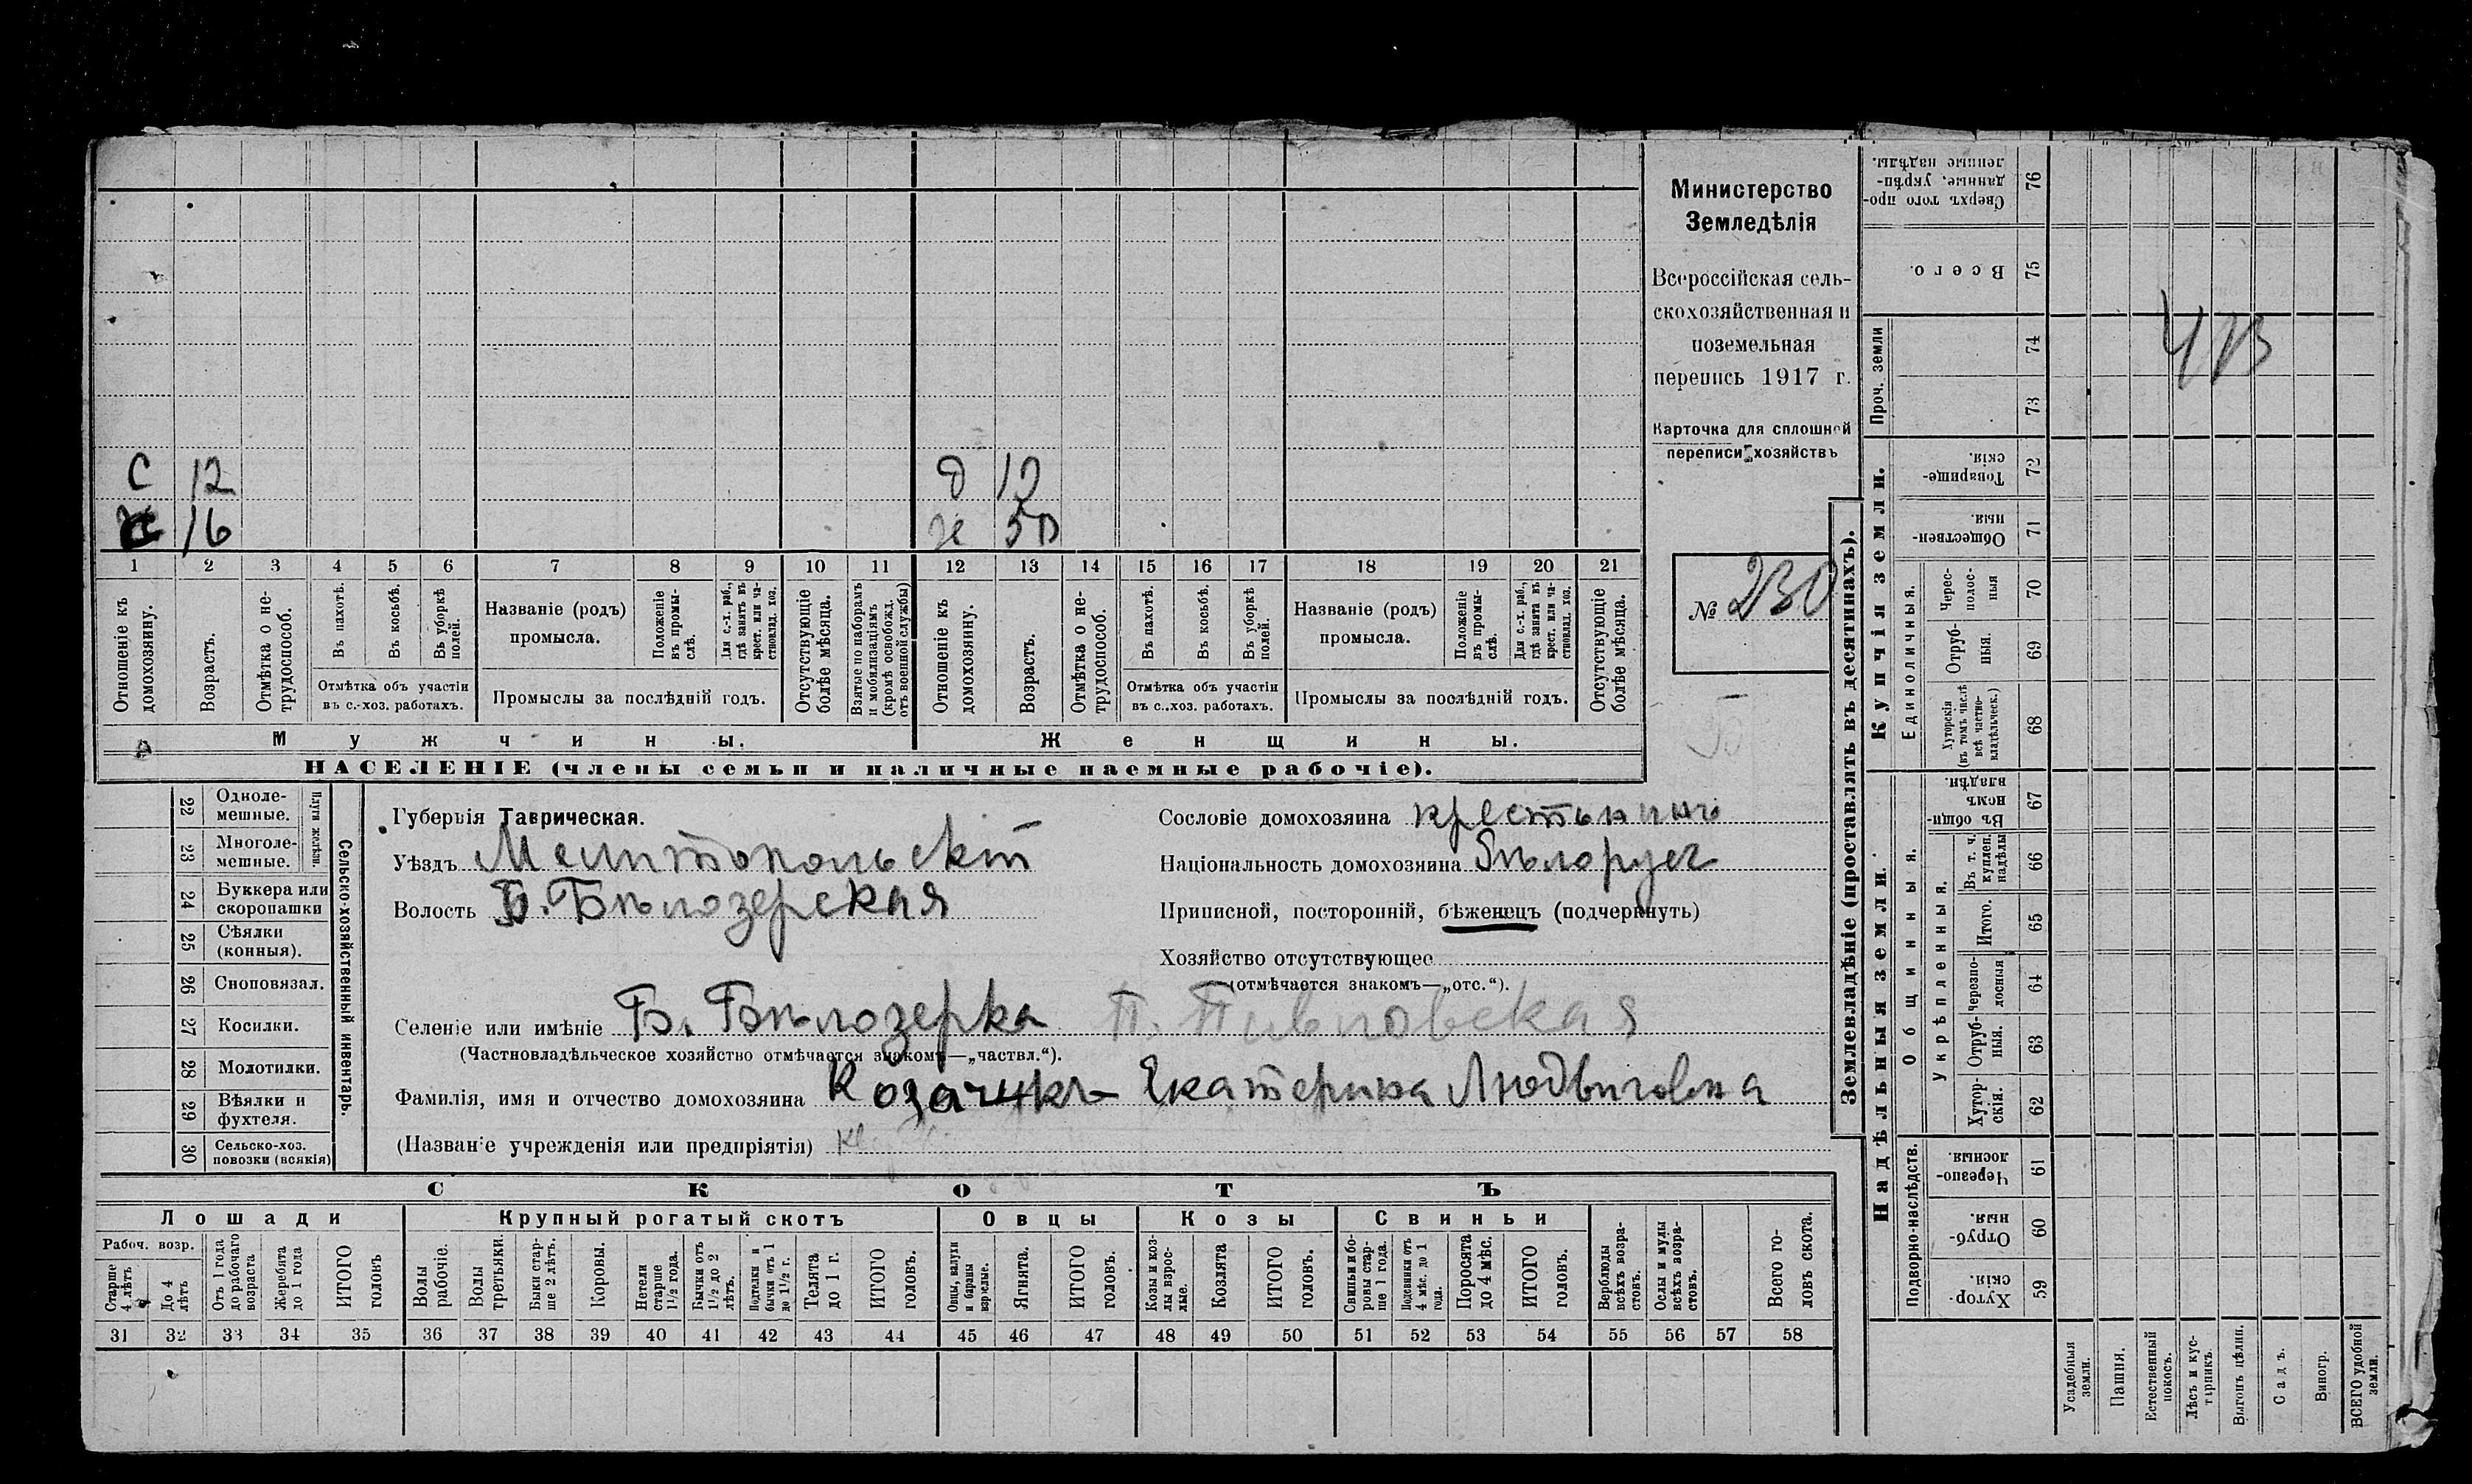 С 12 д 10
16 ж 50
1 2 3 4 5 6 7 8 9 10 11 12 13 14 15 16 17 18 19 20 21
Отношеніе къ домохозяину.
Возрастъ.
Отмѣтка о не-трудоспособ.
Въ пахотѣ.
Въ косьбѣ.
Въ уборкѣ полей.
Отмѣтка объ участіи
въ с.-хоз. работахъ.
Названіе (родъ)
промысла.
Положеніе въ промы-слѣ.
Для с.-х. раб., гдѣ занятъ въ крест. или ча-стновлад. хоз.
Промыслы за послѣдній годъ.
Отсутствующіе болѣе мѣсяца.
Взятые по наборамъ и мобилизаціямъ (кромѣ освобожд. отъ военной службы)
Отношеніе къ домохозяину.
Возрастъ.
Отмѣтка о не-трудоспособ.
Въ пахотѣ.
Въ косьбѣ.
Въ уборкѣ полей.
Отмѣтка объ участіи
въ с.-хоз. работахъ.
Названіе (родъ)
промысла.
Положеніе въ промы-слѣ.
Для с.-х. раб., гдѣ занята въ крест. или ча-стновлад. хоз.
Промыслы за послѣдній годъ.
Отсутствующіе болѣе мѣсяца.
Мужчины. Женщины.
НАСЕЛЕНІЕ (члены семьи и наличные наемные рабочіе).
Министерство
Земледѣлія
Всероссійская сель-
скохозяйственная и
поземельная
перепись 1917 г.
Карточка для сплошной
переписи хозяйствъ
№ 230
Б
22 Одноле-мешные.
23 Многоле-мешные.
Плуги желѣзн.
24 Буккера или скоропашки
25 Сѣялки (конныя).
26 Сноповязал.
27 Косилки.
28 Молотилки.
29 Вѣялки и фухтеля.
30 Сельско-хоз. повозки (всякія)
Сельско-хозяйственный инвентарь.
Губернія Таврическая.
Уѣздъ Мелитопольскій
Волость Б. Бѣлозерская
Селеніе или имѣніе Б. Бѣлозерка
(Частновладѣльческое хозяйство отмѣчается знакомъ—„частвл.“).
Фамилія, имя и отчество домохозяина Екатерина Людвиговна
(Названіе учрежденія или предпріятія)
Сословіе домохозяина крестьянинъ
Національность домохозяина бѣлорусс
Приписной, посторонній, бѣженецъ (подчеркнуть)
Хозяйство отсутствующее
(отмѣчается знакомъ—„отс.“).
СКОТЪ
Лошади
Рабоч. возр.
Старше 4 лѣтъ
До 4 лѣтъ
Отъ 1 года до рабочаго возраста
Жеребята до 1 года
ИТОГО головъ
Крупный рогатый скотъ
Волы рабочіе.
Волы третьяки.
Быки стар-ше 2 лѣтъ.
Коровы.
Нетели старше 1½ года.
Бычки отъ 1½ до 2 лѣтъ.
Подтелки и бычки отъ 1 до 1½ г.
Телята до 1 г.
ИТОГО головъ.
Овцы
Овцы, валухи и бараны взрослые.
Ягнята.
ИТОГО головъ.
Козы
Козы и коз-лы взрос-лые.
Козлята
ИТОГО головъ.
Свиньи
Свиньи и бо-ровы стар-ше 1 года.
Подсвинки отъ 4 мѣс. до 1 года.
Поросята до 4 мѣс.
ИТОГО головъ.
Верблюды всѣхъ возра-стовъ.
Ослы и мулы всѣхъ возра-стовъ.
Всего го-ловъ скота.
31 32 33 34 35 36 37 38 39 40 41 42 43 44 45 46 47 48 49 50 51 52 53 54 55 56 57 58
Землевладѣніе (проставлять въ десятинахъ).
Сверхъ того про-данные, укрѣп-ленные надѣлы. 76
Всего. 75
Проч. земли 74 73
Купчія земли.
Товарище-скія. 72
Обществен-ныя. 71
Единоличныя.
Черес-полос-ныя 70
Отруб-ныя. 69
Хуторскія (въ томъ числѣ всѣ частно-владѣльческ.) 68
Надѣльныя земли.
Общинныя.
Въ общин-номъ владѣн. 67
Укрѣпленныя.
Въ т. ч. куплен. надѣлы 66
Итого. 65
Черезпо-лосныя 64
Отруб-ныя. 63
Хутор-скія. 62
Подворно-наслѣдств.
Черезпо-лосныя. 61
Отруб-ныя. 60
Хутор-скія. 59
Усадебныя земли.
Пашня.
Естественный покосъ.
Лѣсъ и кус-тарникъ.
Выгонъ цѣлин.
Садъ.
Виногр.
ВСЕГО удобной земли.